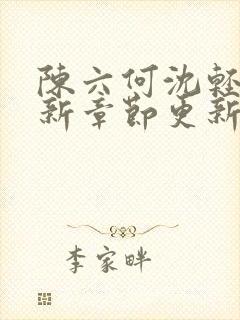 陳六何沈輕
新章節更新
李家畔